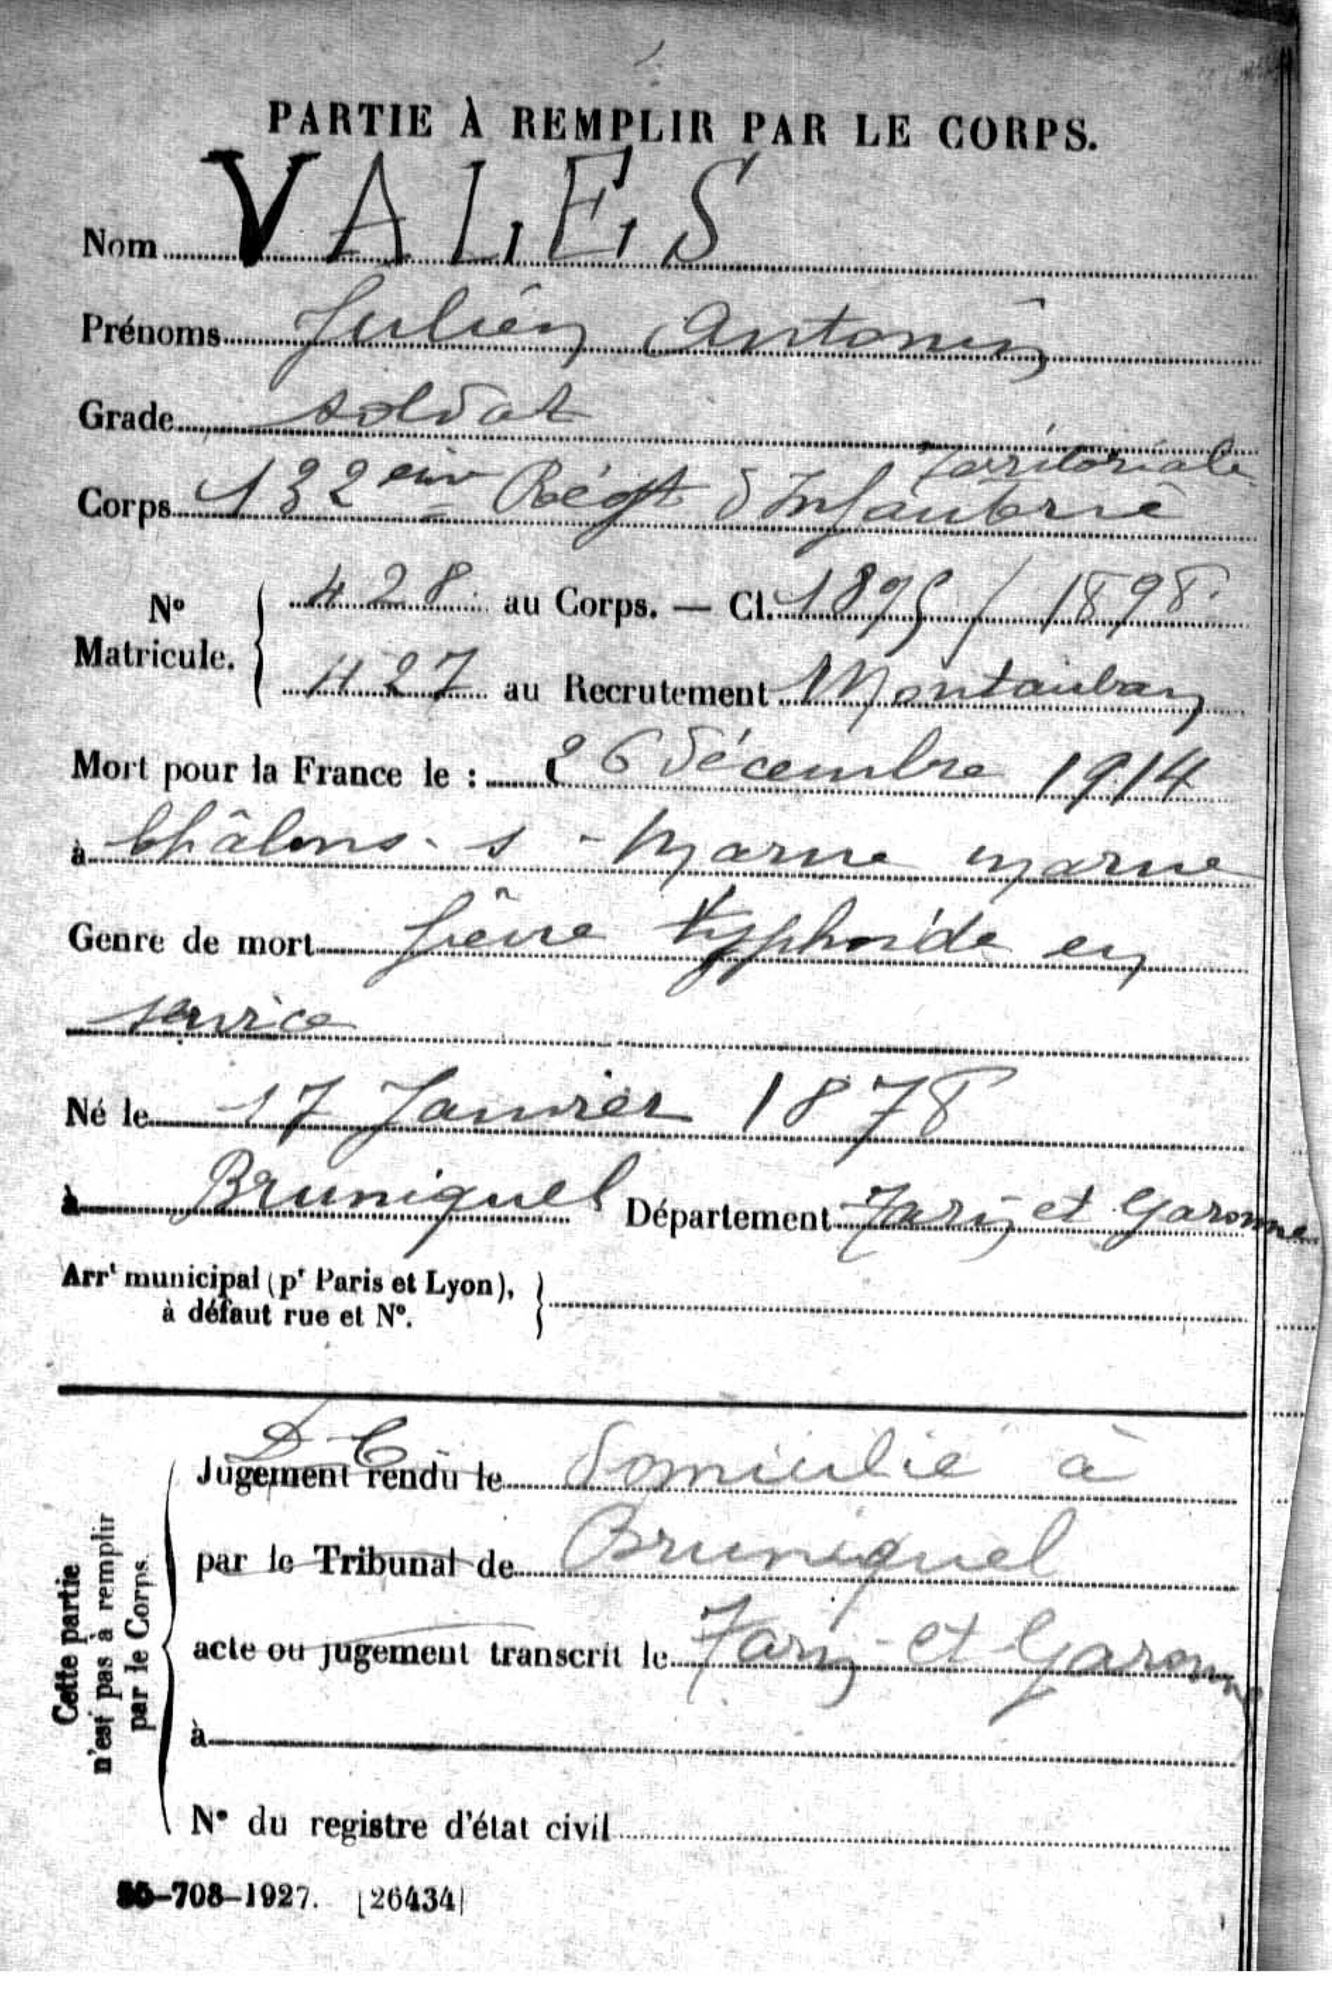 PARTIE À REMPLIR PAR LE CORPS.
Nom VALES
Prénoms Julien Antonin
Grade soldat
territoriale
Corps 132eme Régt d'Infanterie
No Matricule. 428 au Corps. — Cl. 1895 / 1898.
427 au Recrutement Montauban
Mort pour la France le : 26 décembre 1914
à Châlons-s-Marne marne
Genre de mort fièvre typhoïde en
service
Né le 17 Janvier 1878
à Bruniquel Département Tarn et Garonne
Arrt municipal (pr Paris et Lyon),
à défaut rue et No.
D C
Jugement rendu le domicilié à
par le Tribunal de Bruniquel
acte ou jugement transcrit le Tarn-et-Garonne
à
No du registre d'état civil
Cette partie
n'est pas à remplir
par le Corps.
-708-1927. [26434]